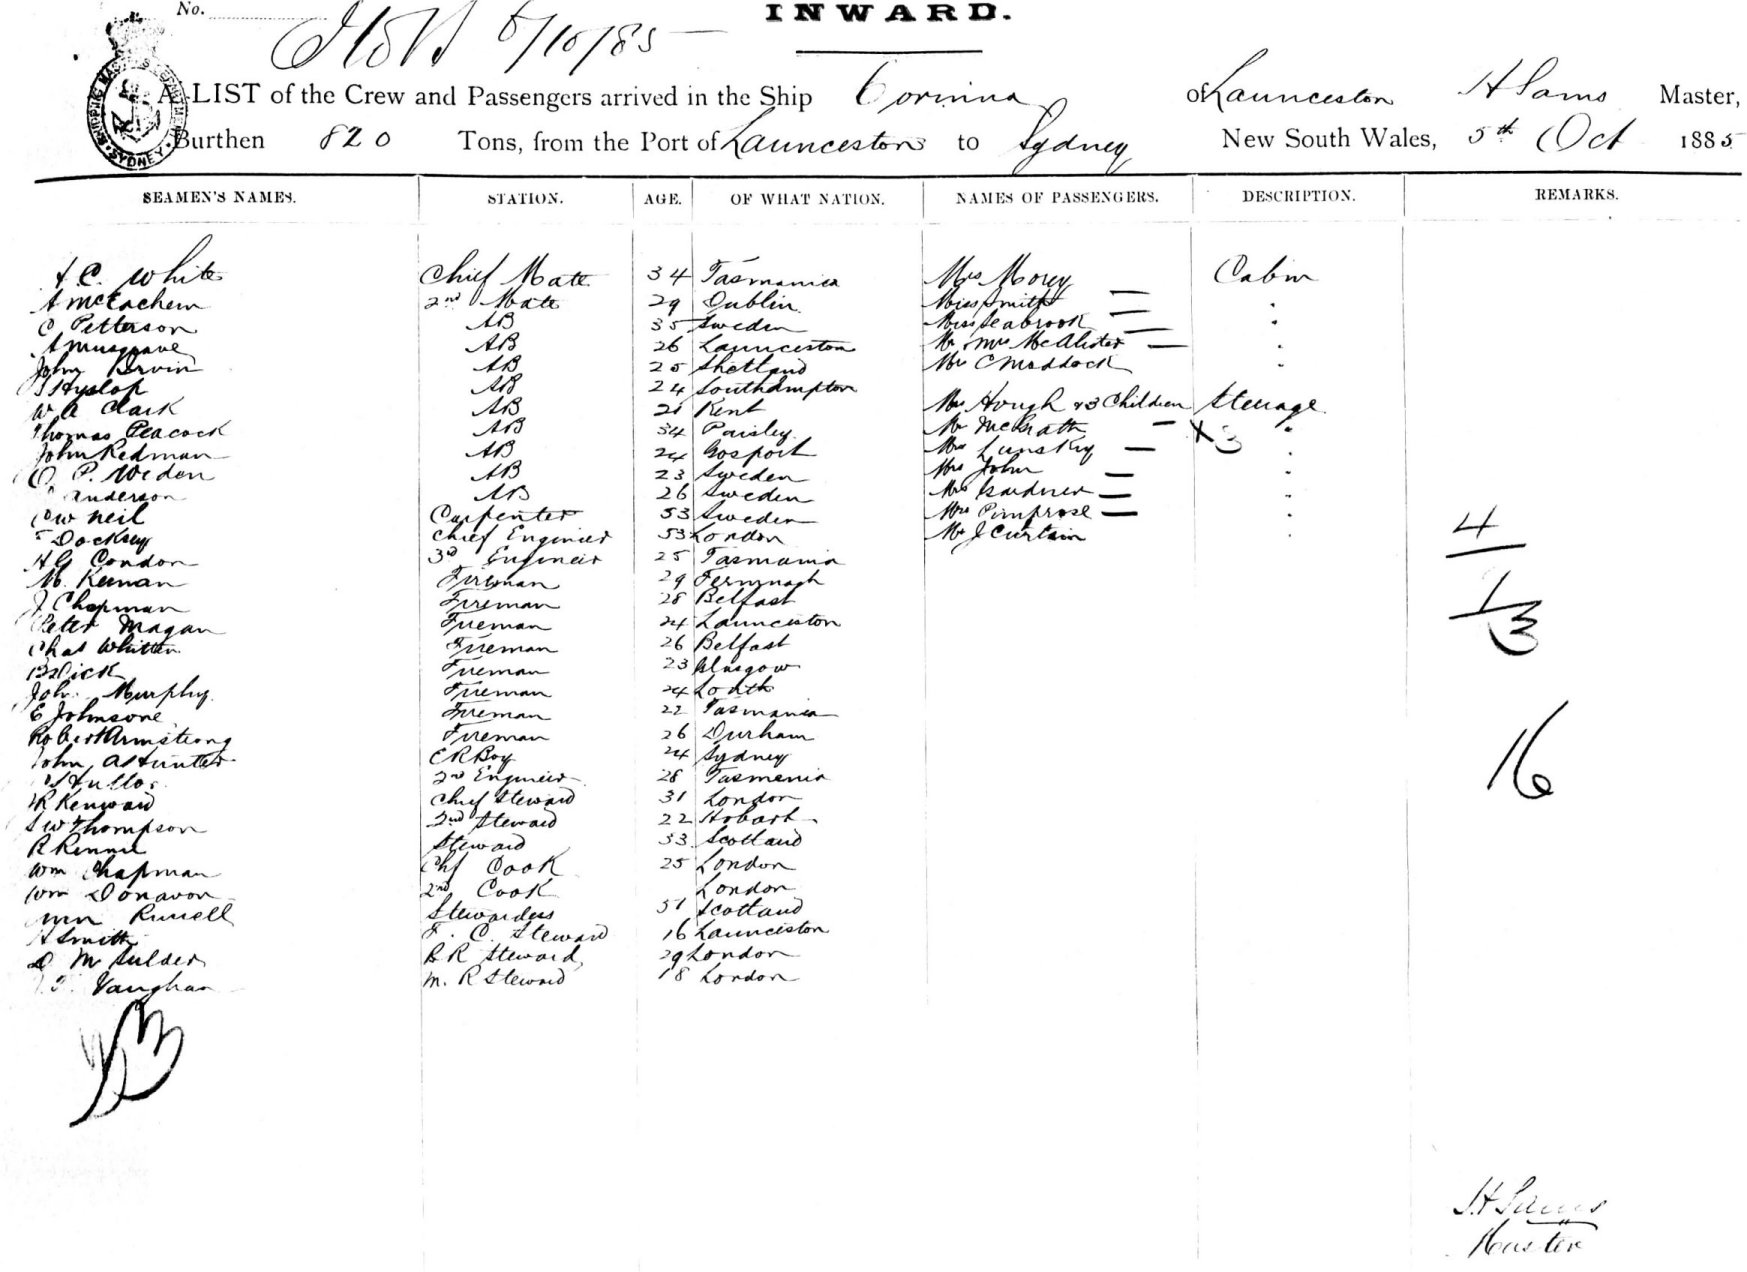 No.
6/10/85
INWARD.
A LIST of the Crew and Passengers arrived in the Ship Corinna of Launceston H Sams Master,
Burthen 820 Tons, from the Port of Launceston to Sydney New South Wales, 5th Oct 1885
SEAMEN'S NAMES. STATION. AGE. OF WHAT NATION. NAMES OF PASSENGERS. DESCRIPTION. REMARKS.
C. White Chief Mate 34 Tasmania Mrs Morey Cabin
A McEachern 2nd Mate 29 Dublin Miss Smith "
C Petterson AB 35 Sweden Miss Seabrook "
A Musgrave AB 26 Launceston Mr Mrs McAlister "
John Irvin AB 25 Shetland Mr C Maddock "
Hyslop AB 24 Southampton
W A Clark AB 21 Kent Mrs Hough & 3 Children Steerage
Thomas Peacock AB 34 Paisley Mr McGrath X3 "
John Redman AB 24 Gosport Mrs "
O. P. Weden AB 23 Sweden Mrs John "
Anderson AB 26 Sweden Mrs Gardner "
C W Neil Carpenter 53 Sweden Mrs Pimprose "
Chief Engineer 53 London Mr J Curtain "
H G Condon 3rd Engineer 25 Tasmania
M. Keenan Fireman 29
J Chapman Fireman 28 Belfast
Peter Magan Fireman 24 Launceston
Chas Whitten Fireman 26 Belfast
Dick Fireman 23 Glasgow
John Murphy Fireman 24 Louth
E Johnsone Fireman 22 Tasmania
Robert Armstrong Fireman 26 Durham
John A Hunter E R Boy 24 Sydney
2nd Engineer 28 Tasmania
R Kenward Chief Steward 31 London
S W Thompson 2nd Steward 22 Hobart
R Rennie Steward 33 Scotland
Wm Chapman Chf Cook 25 London
Wm Donavon 2nd Cook London
Russell Stewardess 51 Scotland
H Smith F. C. Steward 16 Launceston
D M Sulder B R Steward 29 London
Vaughan M. R Steward 18 London
4
1
3
16
33
H Sams
Master
SHIPPING MASTER'S DEPARTMENT SYDNEY